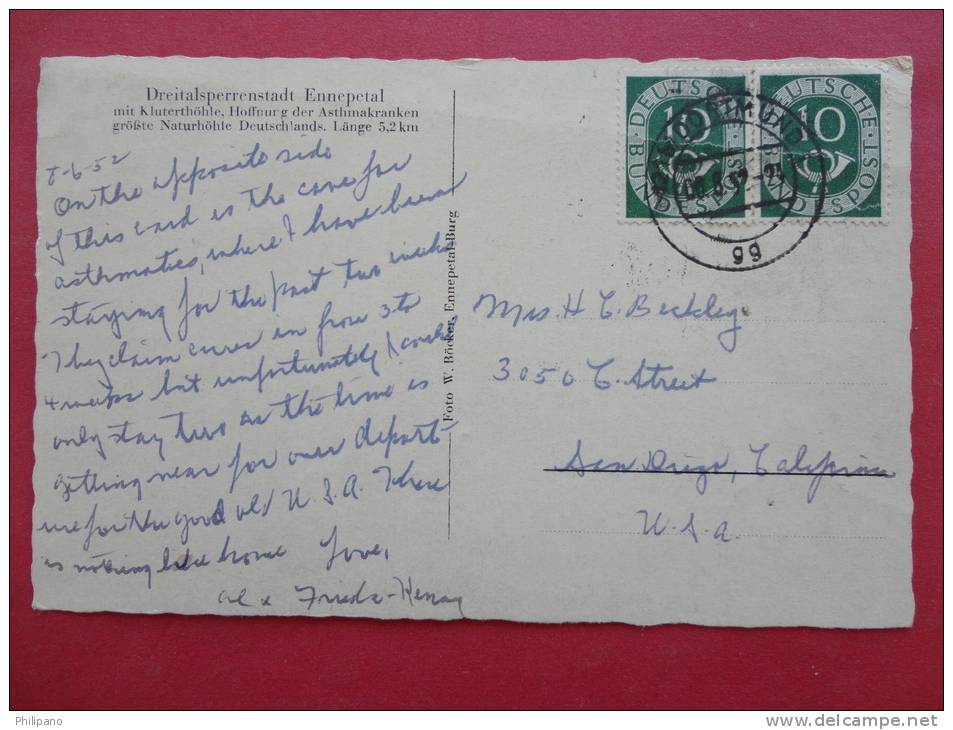 Dreitalsperrenstadt Ennepetal
mit Kluterthöhle, Hoffnung der Asthmakranken
größte Naturhöhle Deutschlands. Länge 5,2 km
8-6-52
On the opposite side
of this card is the cave for
asthmatics, where I have been
staying for the past two weeks
They claim cures in from 3 to
4 weeks but unfortunately I could
only stay two as the time is
getting near for our depart-
ure for the good old U.S.A. There
is nothing like home Love,
Al & Frieda-
Foto W. Böcker, Ennepetal-Burg
DEUTSCHE BUNDESPOST
10
DEUTSCHE BUNDESPOST
10
DORTMUND
gg
Mrs. H C. Beckley
3050 C. Street
San Diego, California
U.S.A.
Philipano
http://www.delcampe.net